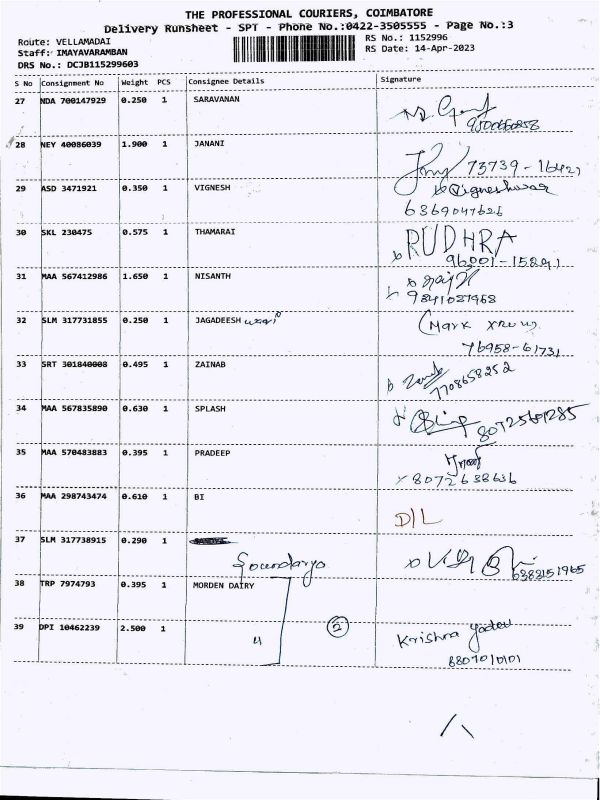 THE PROFESSIONAL COURIERS, COIMBATORE
Delivery Runsheet - SPT - Phone No.:0422-3505555 - Page No.:3
Route: VELLAMADAI RS No.: 1152996
Staff: IMAYAVARAMBAN RS Date: 14-Apr-2023
DRS No.: DCJB115299603
S No Consignment No Weight PCS Consignee Details Signature
27 NDA 700147929 0.250 1 SARAVANAN
28 NEY 40086039 1.900 1 JANANI
73739-16427
29 ASD 3471921 0.350 1 VIGNESH Vigneshwar
6369047626
30 SKL 230475 0.575 1 THAMARAI RUDHRA
31 MAA 567412986 1.650 1 NISANTH
9841081968
32 SLM 317731855 0.250 1 JAGADEESH
76958-61731
33 SRT 301840008 0.495 1 ZAINAB
7708658252
34 MAA 567835890 0.630 1 SPLASH
35 MAA 570483883 0.395 1 PRADEEP
8072638636
36 MAA 298743474 0.610 1 BI
D/L
37 SLM 317738915 0.290 1
Soundarya
38 TRP 7974793 0.395 1 MORDEN DAIRY
39 DPI 10462239 2.500 1 4 2 Krishna